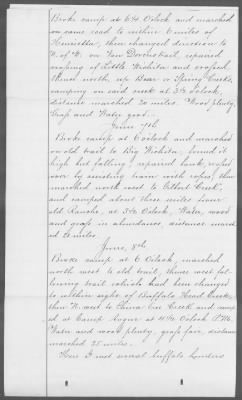 Broke camp at 6½ Oclock and marched
on same road to within 6 miles of
Henrietta, then changed direction to
N. of W. on Van Dorns trail, repaired
crossing of Little Wichita and crossed,
thence north, up Bear or Spring Creek,
camping on said creek at 3½ Oclock,
distance marched 20 miles. Wood plenty,
Grass and Water good.
June 7th
Broke camp at 6 oclock and marched
on old trail to Big Wichita, found it
high but falling, repaired bank, crossed
over by assisting train with ropes, then
marched north west to Gilbert Creek,
and camped about three miles from
old Rancho, at 3½ Oclock, Water, wood
and grass in abundance, distance march
ed 21 miles.
June, 8th
Broke camp at 6 Oclock, marched
north west to old trail, thence west fol-
lowing trail which had been changed
to within sight of Buffalo Head Creek,
then N. west to China Tree Creek and camp
ed at Camp Augur at 4½ Oclock P.M.
Water and wood plenty, grass fair, distance
marched 25 miles.
Here I met several buffalo hunters